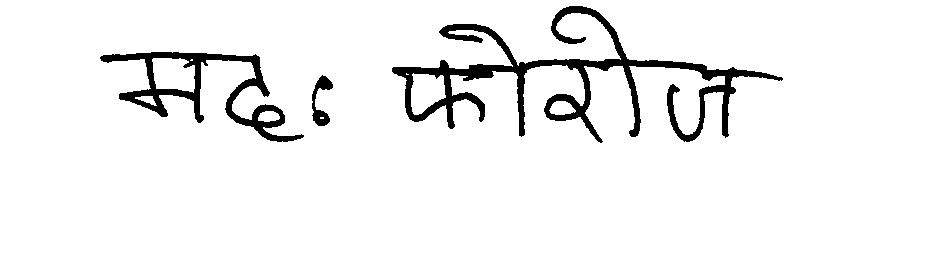 मदः फीरोज